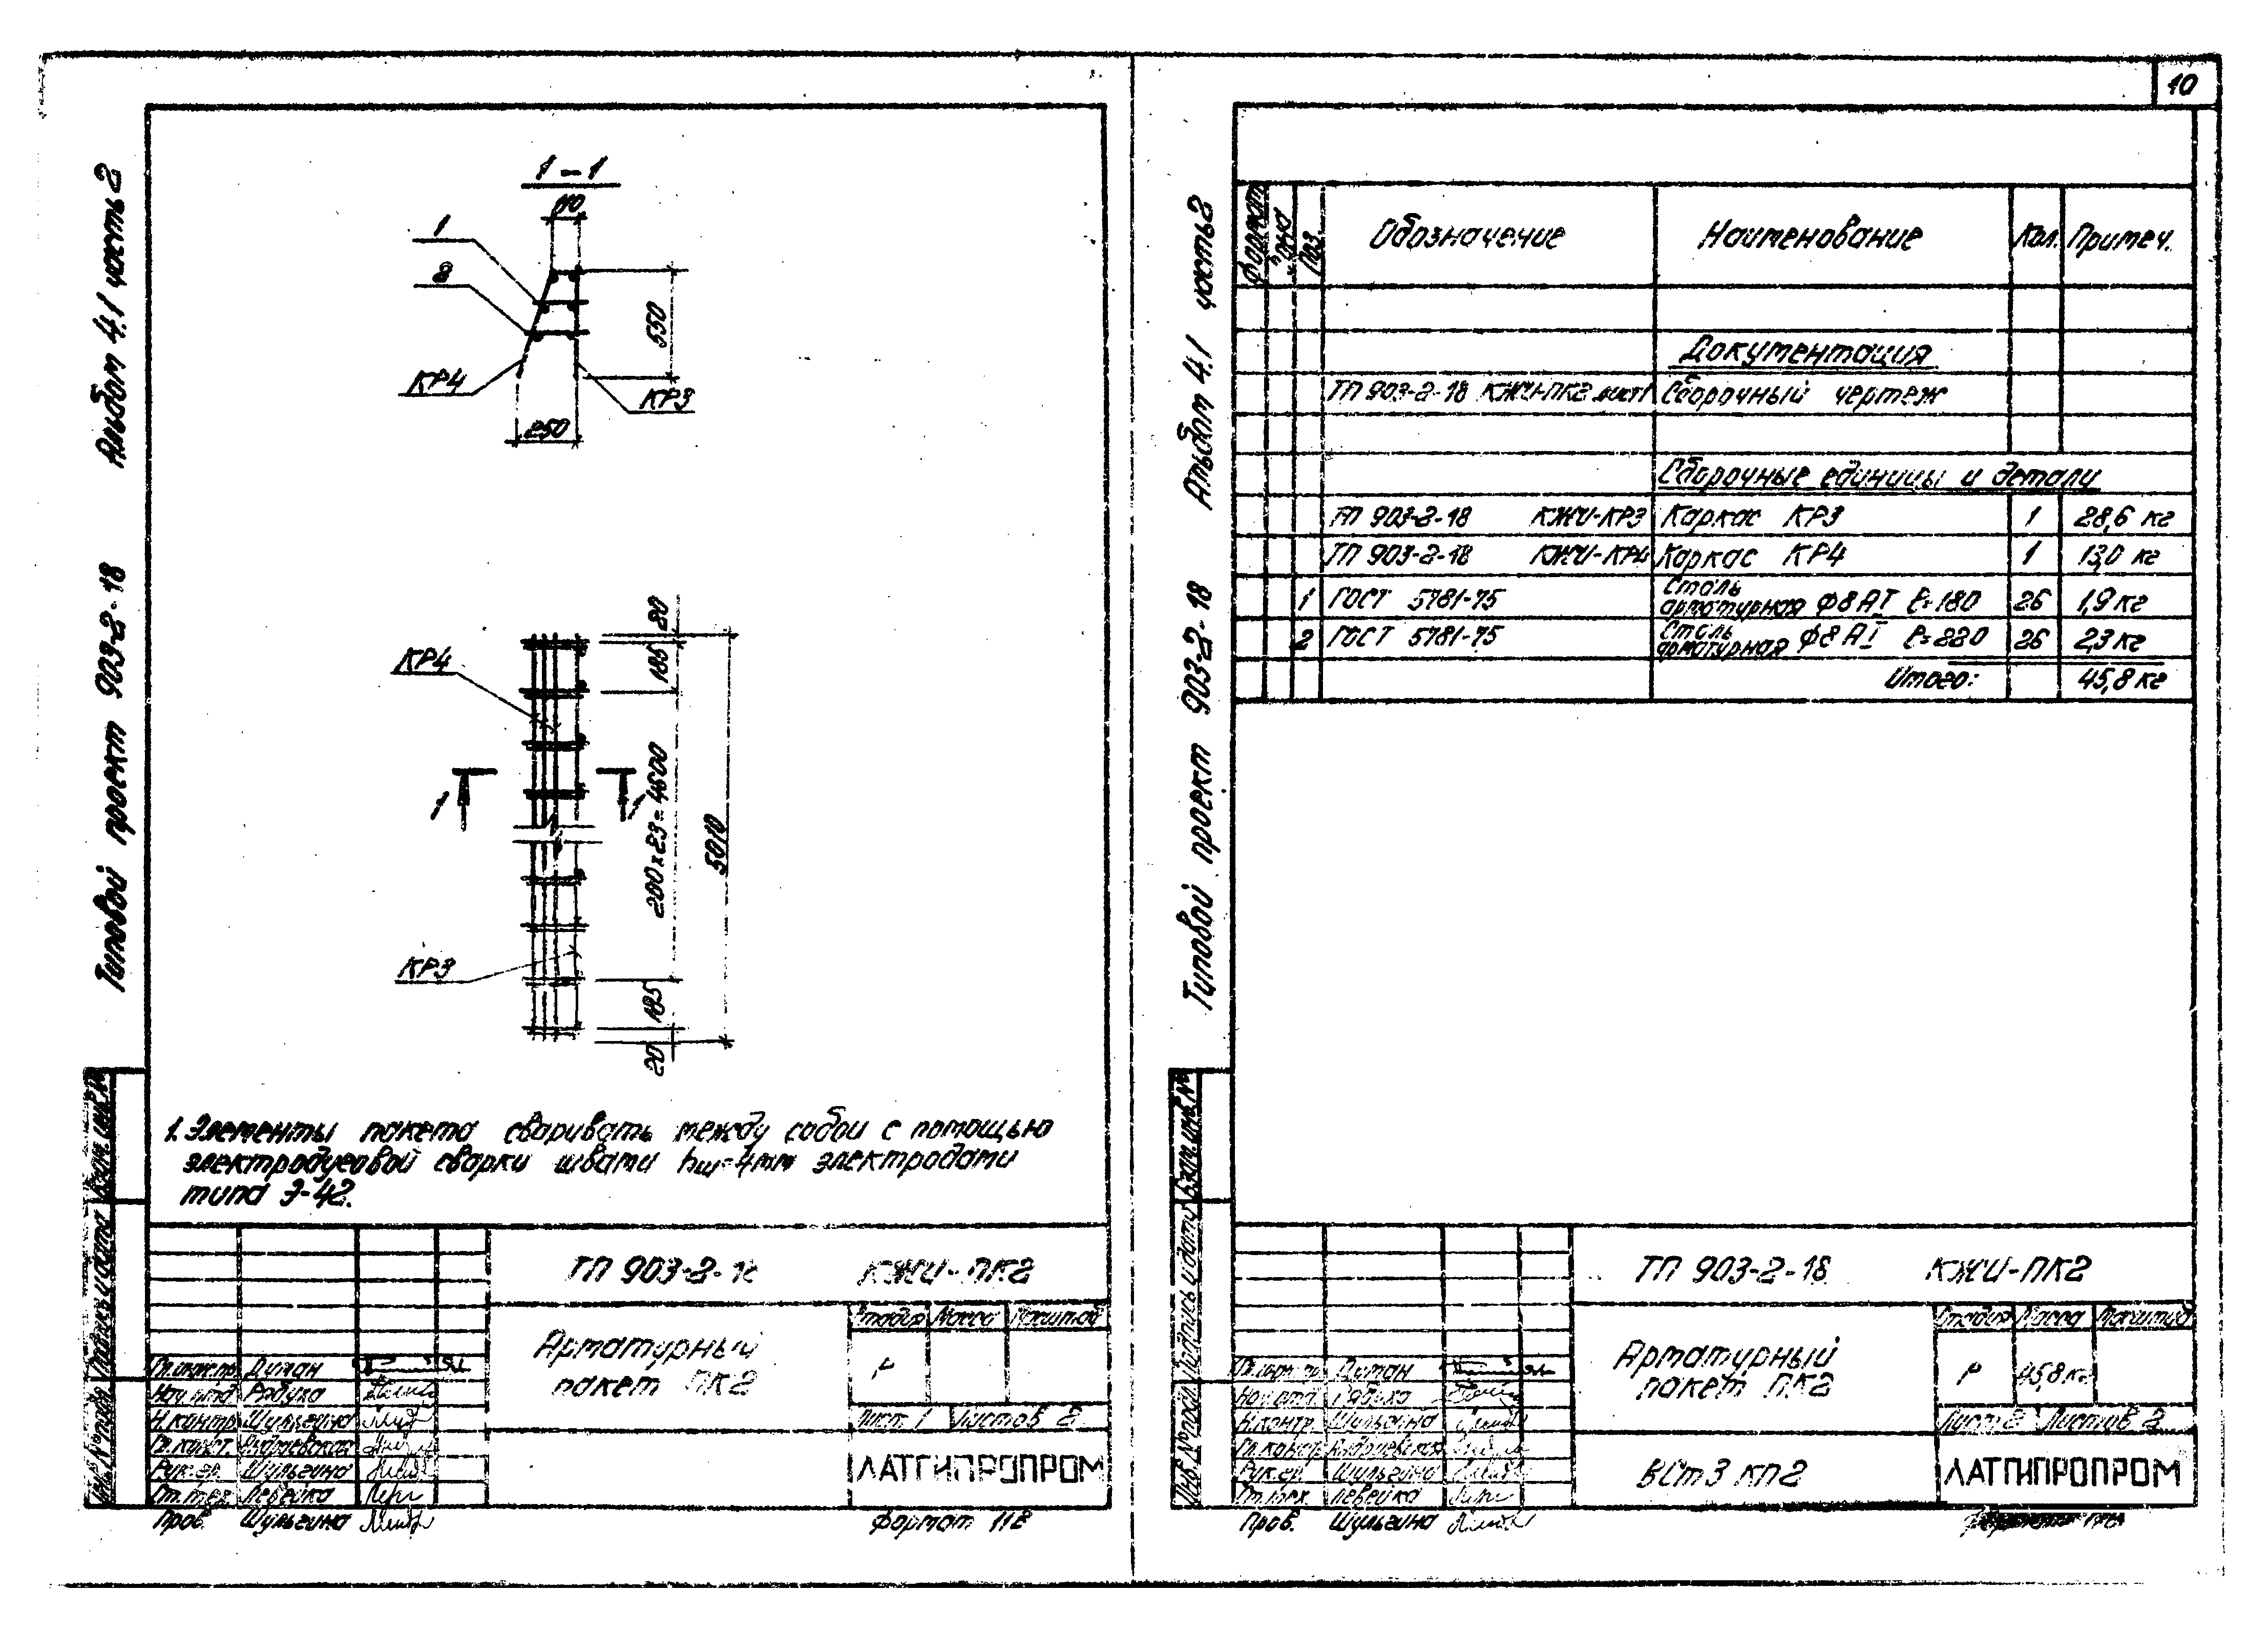 10
Альбом 4.1 часть 2
Типовой проект 903-2-18
1-1
110
1
2
550
КР4
КР3
250
20
185
КР4
1
1
200x23=4600
5010
КР3
185
20
1. Элементы пакета сваривать между собой с помощью
электродуговой сварки швами hш=4мм электродами
типа Э-42.
ТП 903-2-18 КЖИ-ПК2
Арматурный
пакет ПК2
Стадия Масса Масштаб
Р
Лист 1 Листов 2
ЛАТГИПРОПРОМ
Гл.инж.пр. Думан
Нач.отд.
Н.контр. Шульгина
Гл.конст.
Рук.гр. Шульгина
Ст.тех. Левейка
Пров. Шульгина
Формат 11В
Взам.инв.№
Подпись и дата
Инв.№ подл.
Альбом 4.1 часть 2
Типовой проект 903-2-18
Формат Зона Поз. Обозначение Наименование Кол. Примеч.
Документация
ТП 903-2-18 КЖИ-ПК2 лист1 Сборочный чертеж
Сборочные единицы и детали
ТП 903-2-18 КЖИ-КР3 Каркас КР3 1 28,6 кг
ТП 903-2-18 КЖИ-КР4 Каркас КР4 1 13,0 кг
1 ГОСТ 5781-75 Сталь арматурная Ф8АI ℓ=180 26 1,9 кг
2 ГОСТ 5781-75 Сталь арматурная Ф8АI ℓ=220 26 2,3 кг
Итого: 45,8 кг
ТП 903-2-18 КЖИ-ПК2
Арматурный
пакет ПК2
Стадия Масса Масштаб
Р 45,8 кг
Лист 2 Листов 2
ВСт3 кп2
ЛАТГИПРОПРОМ
Гл.инж.пр. Думан
Нач.отд.
Н.контр. Шульгина
Гл.констр.
Рук.гр. Шульгина
Ст.тех. Левейка
Пров. Шульгина
Взам.инв.№
Подпись и дата
Инв.№ подл.